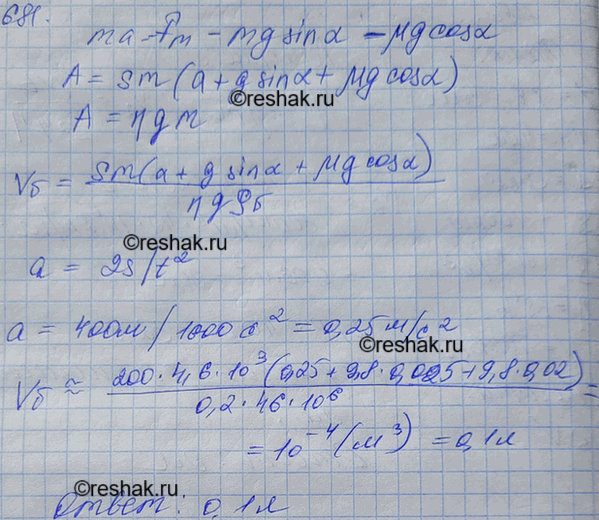 681.
ma = Fт - mg sinα - μg cosα
A = Sm (a + g sinα + μg cosα)
©reshak.ru
A = ηqm
Vб = Sm(a + g sinα + μg cosα) / ηqρб
©reshak.ru
a = 2S/t²
©reshak.ru
a = 400м / 1600 с² = 0,25 м/с²
Vб ≈ 200·4,6·10³ (0,25 + 9,8·0,025 + 9,8·0,02) / 0,2·46·10⁶ =
= 10⁻⁴ (м³) = 0,1л
©reshak.ru
Ответ: 0,1л